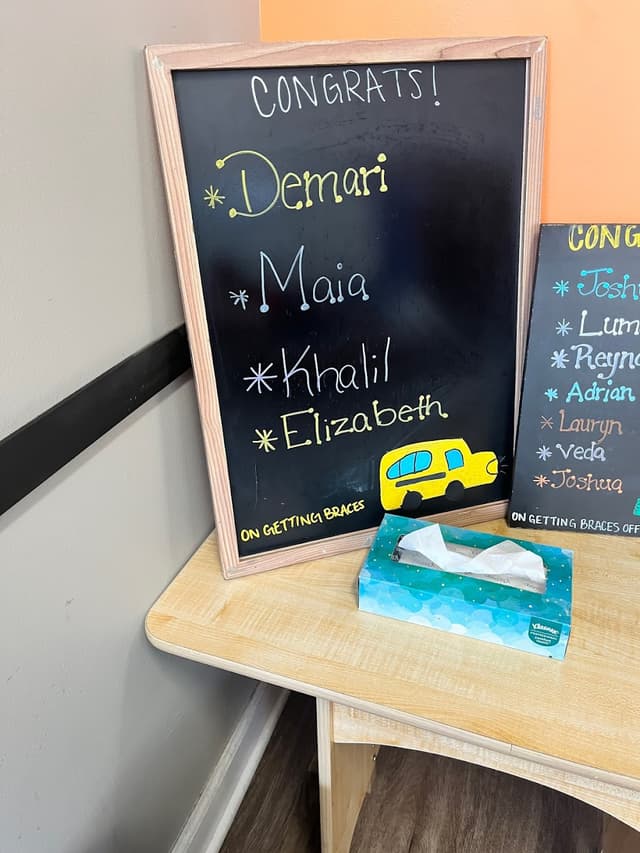 CONGRATS!
* Demari
* Maia
* Khalil
* Elizabeth
ON GETTING BRACES
* Adrian
* Lauryn
* Veda
* Joshua
ON GETTING BRACES OFF
Kleenex